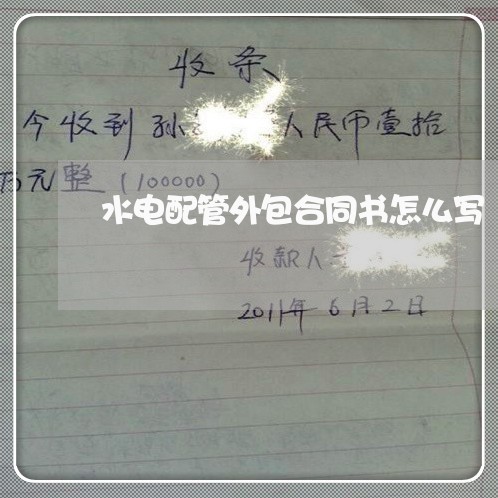 收条
今收到孙 人民币壹拾
万元整(100000)
水电配管外包合同书怎么写
收款人
2011年6月2日